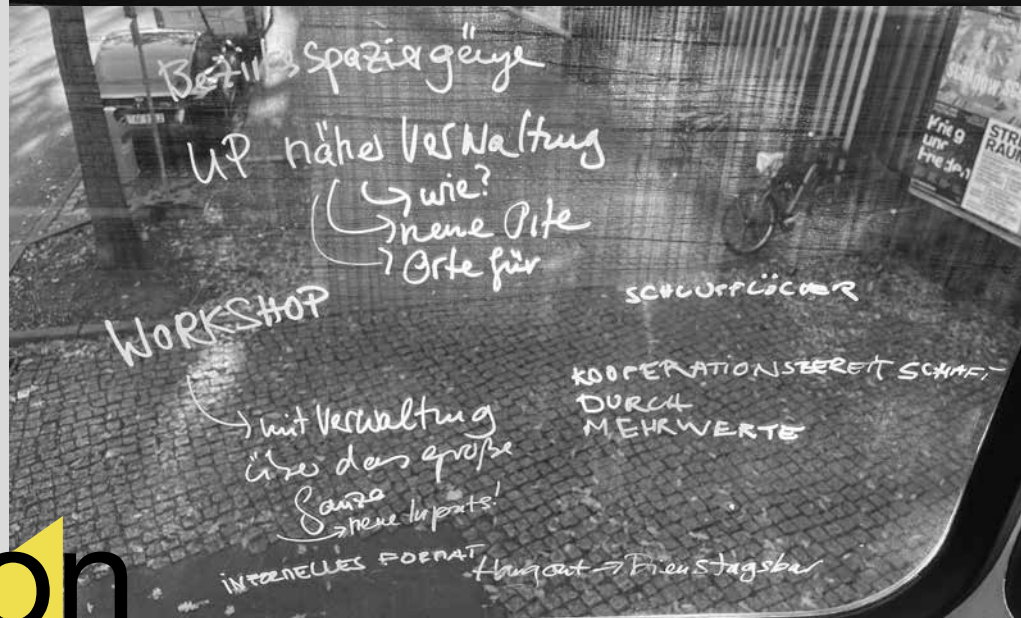 Bezirksspaziergänge
UP näher Verwaltung
wie?
neue Orte
Orte für
WORKSHOP
mit Verwaltung
über das große
Ganze
neue Inputs!
INFORMELLES FORMAT
Hangout → Dienstagsbar
SCHLUPFLÖCHER
KOOPERATIONSBEREITSCHAFT
DURCH
MEHRWERTE
Krieg
und
Frieden
STR
RAUM
on